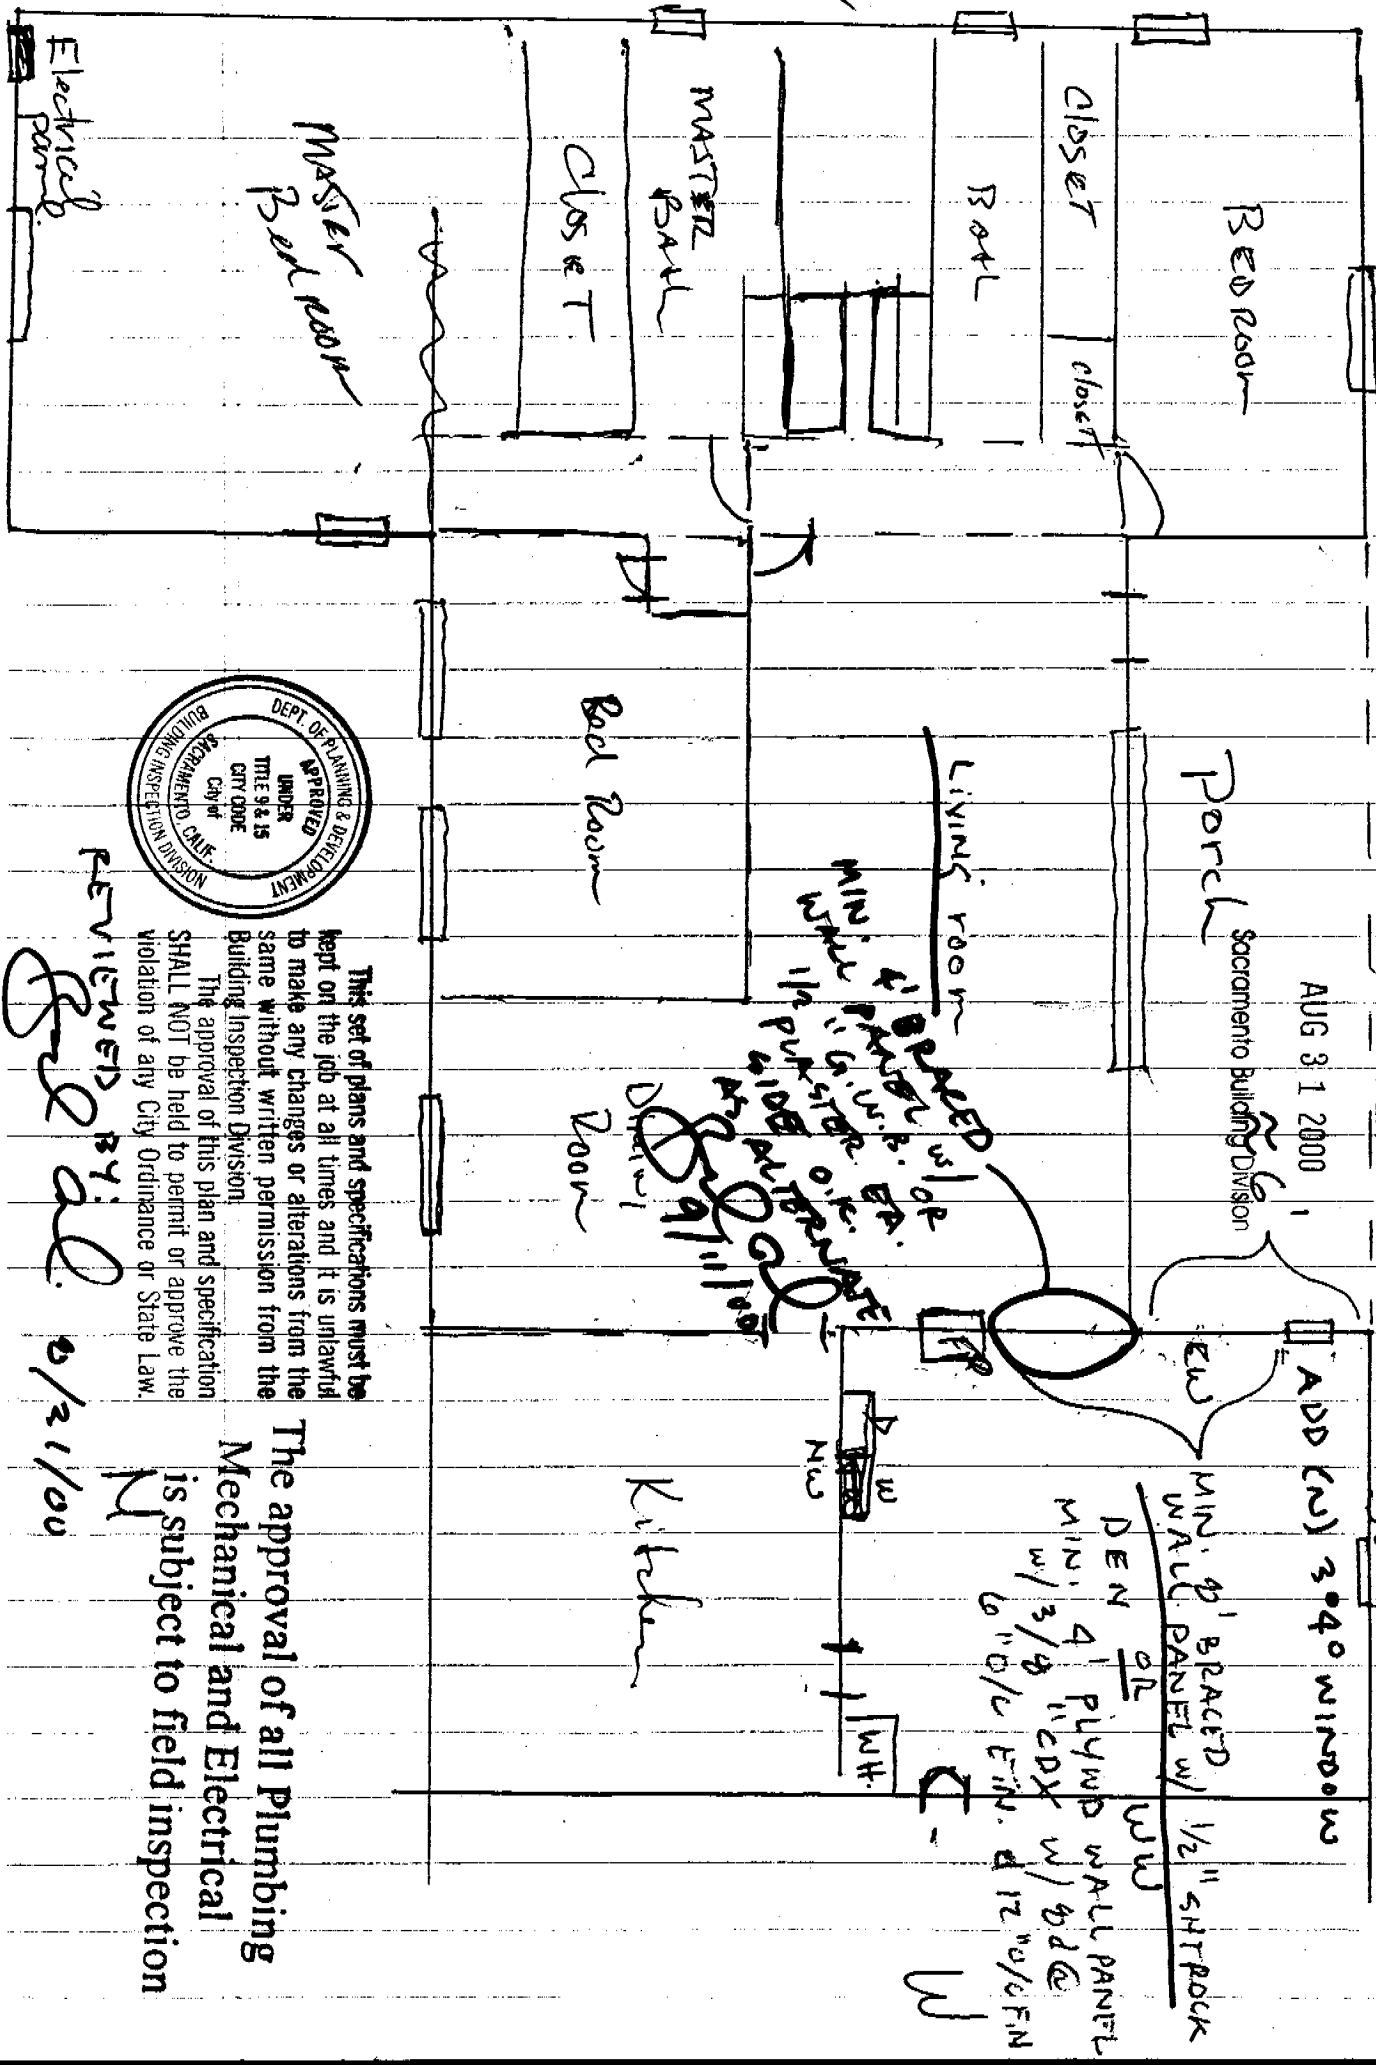 AUG 31 2000
Sacramento Building Division
≈ 6'
ADD (N) 3°4° WINDOW
MIN. 8' BRACED
WALL PANEL W/ 1/2" SHTROCK
EW
WW
DEN OR
MIN. 4' PLYWD WALL PANEL
W/ 3/8" CDX W/ 8d @
6" O/C E.N. & 12" O/C F.N
W
BEDROOM
CLOSET
closet
Bath
MASTER
BAth
CLOSET
MASTER
Bed ROOM
Electrical
panel
Porch
Living room
Bed Room
MIN 4' BRACED
WALL PANEL W/
1/2" G.W.B. OR
PLASTER EA.
SIDE O.K.
AS ALTERNATE
9/11/00
Dining
Room
FP
D
W
NW
WH.
Kitchen
DEPT. OF PLANNING & DEVELOPMENT
APPROVED
UNDER
TITLE 9 & 15
CITY CODE
City of
SACRAMENTO, CALIF.
BUILDING INSPECTION DIVISION
This set of plans and specifications must be
kept on the job at all times and it is unlawful
to make any changes or alterations from the
same without written permission from the
Building Inspection Division.
The approval of this plan and specification
SHALL NOT be held to permit or approve the
violation of any City Ordinance or State Law.
REVIEWED BY:
8/31/00
The approval of all Plumbing
Mechanical and Electrical
is subject to field inspection
N